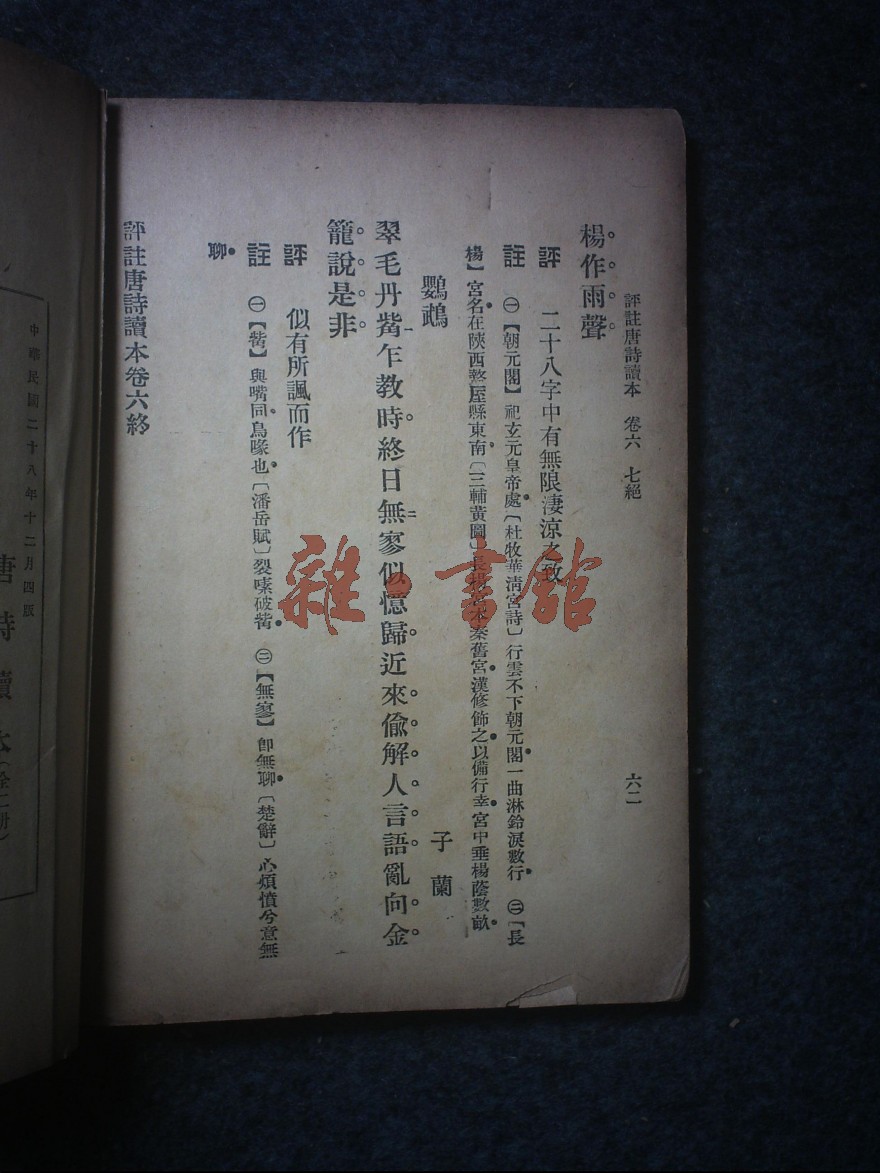 評註唐詩讀本　卷六　七絕　六二
楊作雨聲
評　二十八字中有無限淒涼之致
註　㊀【朝元閣】祀玄元皇帝處〔杜牧華清宮詩〕行雲不下朝元閣一曲淋鈴淚數行　㊁【長
楊】宮名在陝西盩厔縣東南〔三輔黃圖〕長楊宮本秦舊宮漢修飾之以備行幸宮中垂楊蔭數畝
鸚鵡　子蘭
翠毛丹觜乍教時終日無寥似憶歸近來偷解人言語亂向金
籠說是非
評　似有所諷而作
註　㊀【觜】與嘴同鳥喙也〔潘岳賦〕裂嗉破觜　㊁【無寥】卽無聊〔楚辭〕心煩憒兮意無
聊
評註唐詩讀本卷六終
中華民國二十八年十二月四版
唐詩讀本(全二冊)
雜·書館